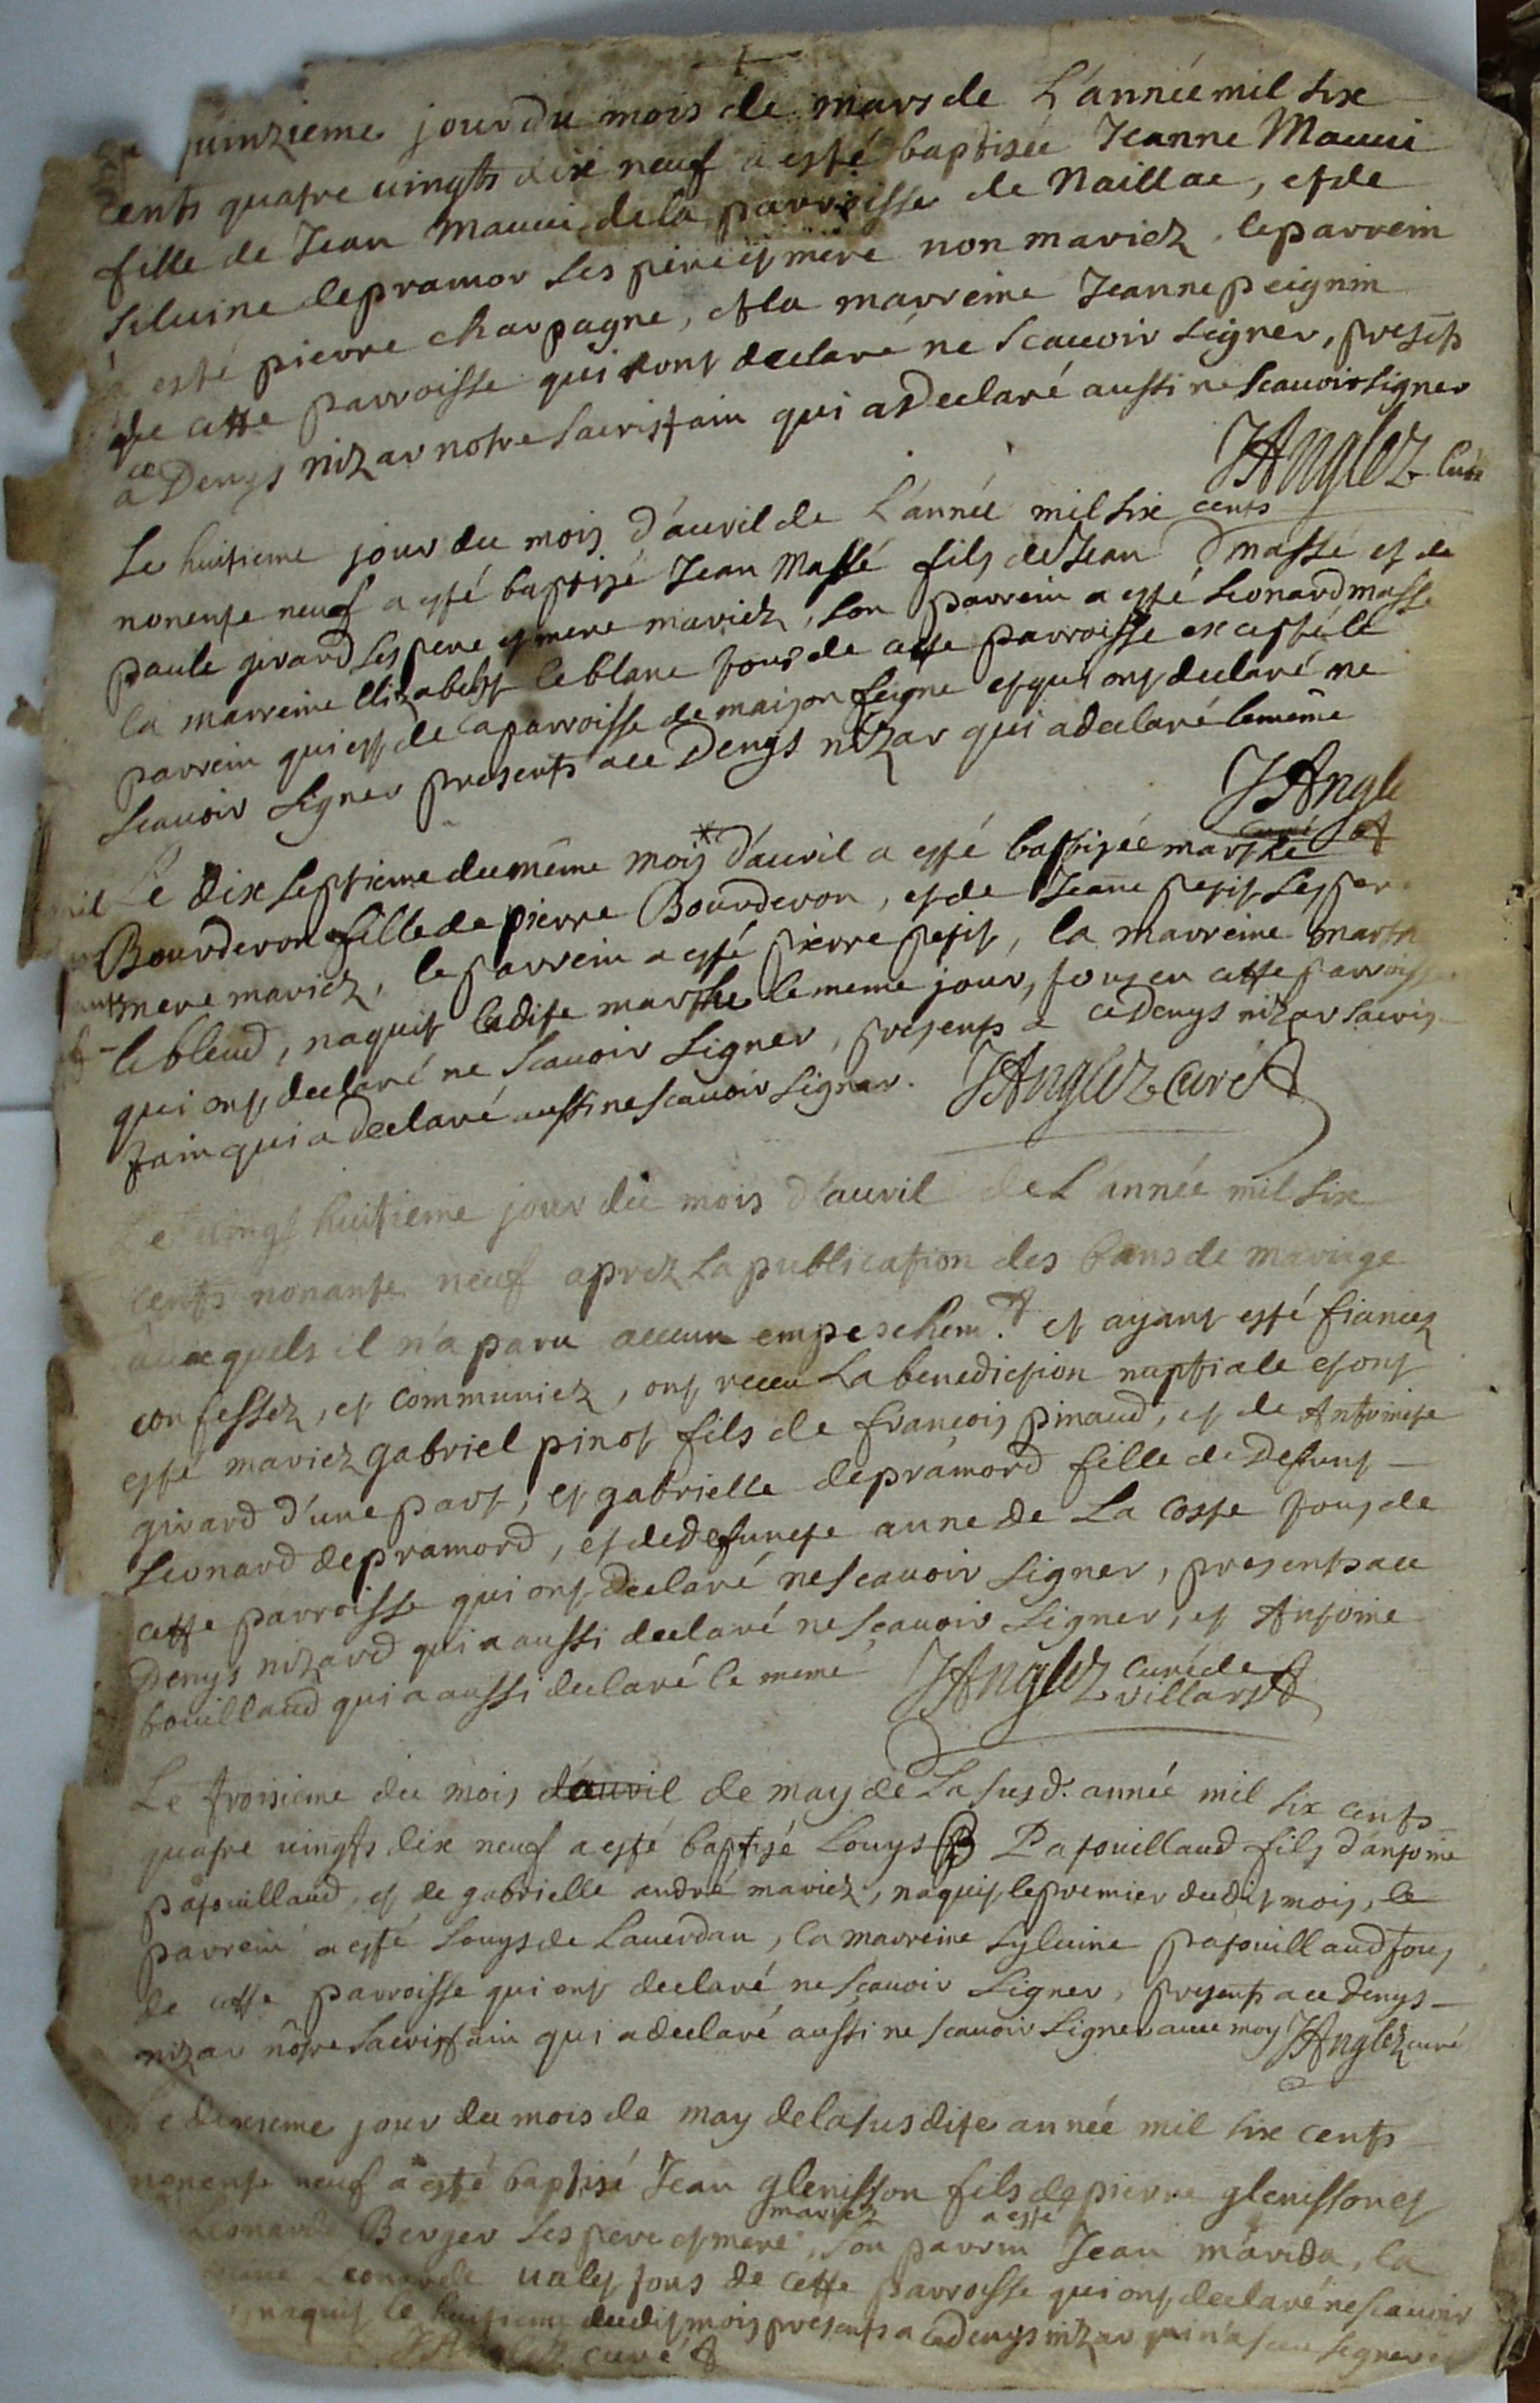 quinzieme jour du mois de mars de L'année mil six
cents quatre uingts dix neuf a esté baptisée Jeanne Mauui
fille de Jean Mauui de la parroisse de Naillac, et de
siluine depramor ses pere et mere non mariez. le parrein
a esté pierre charpagne, et la marreine Jeanne peignin
de cette parroisse qui ont declaré ne scauoir signer, presets
a ce Denys nizar notre sacristain qui a declaré aussi ne scauoir signer
JAnglez Curé
Le huitieme jour du mois d'auril de L'année mil six cents
nonente neuf a esté baptizé Jean Massé fils de Jean massé et de
paule girard ses pere et mere mariez, son parrein a esté Leonard massé
la marreine Elizabeth leblanc tous de cette parroisse excepté le
parrein qui est de la parroisse de maison feigne et qui ont declaré ne
scauoir signer presents a ce Denys nizar qui a declaré le même
JAngle
curé
Le dix septieme du même mois * d'auril a esté baptisée marthe
Bourderon fille de pierre Bourderon, et de Jeane petit ses per
mere mariez, le parrein a esté pierre petit, la marreine marth
lebleud, naquit ladite marthe le meme jour, tous en cette parroisse
qui ont declaré ne scauoir signer, presents a ce Denys nizar sacris
tain qui a declaré aussi ne scauoir signer. JAnglez Curé
Le uingt huitieme jour du mois d'auril de L'année mil six
cents nonante neuf aprez la publication des bans de mariage
auxquels il n'a paru aucun empeschem.t et ayant esté fiancez
confessez, et communiez, ont receu La benediction nuptiale et ont
esté mariez gabriel pinot fils de françois pinaud, et de Antoinete
girard d'une part, et gabrielle depramord fille de Defunt
Leonard depramord, et de defuncte anne de La Coste tous de
cette parroisse qui ont declaré ne scauoir signer, presents a ce
Denys nizard qui a aussi declaré ne scauoir signer, et Antoine
bouillaud qui a aussi declaré le meme JAnglez curé de
villars
Le troisieme du mois dauril de may de La susd. année mil six cents
quatre uingts dix neuf a esté baptisé Louys Patouillaud fils d'antoine
patouillaud, et de gabrielle andré mariez, naquit le premier dudit mois, le
parrein a esté Louys de Lauerdan, la marreine syluine patouillaud tous
de cette parroisse qui ont declaré ne scauoir signer, presents a ce Denys
nizar nôtre sacristain qui a declaré aussi ne scauoir signer auec moy JAnglez curé
jour du mois de may de la susdite année mil six cents
nonente neuf a esté baptisé Jean glenisson fils de pierre glenisson et
Leonarde Berger ses pere et mere mariez, son parrein a esté Jean marida, la
Leonarde ualet tous de cette parroisse qui ont declaré ne scauoir
naquit le huitieme dudit mois presents a ce denys nizar qui n'a sceu signer
JAnglez curé